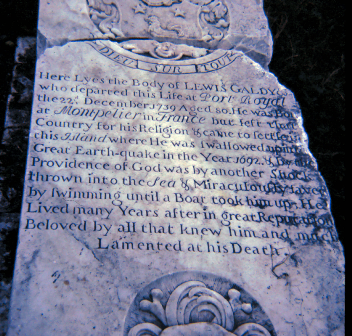 DIEU SUR TOUT
Here Lyes the Body of LEWIS GALDY
who departed this Life at Port Royal
the 22. December 1739 Aged 80. He was Born
at Montpelier in France but left that
Country for his Religion & came to settle in
this Island where He was swallowed up in the
Great Earth-quake in the Year 1692. & By the
Providence of God was by another Shock
thrown into the Sea & Miraculously saved
by swimming until a Boat took him up. He
Lived many Years after in great Reputation
Beloved by all that knew him and much
Lamented at his Death